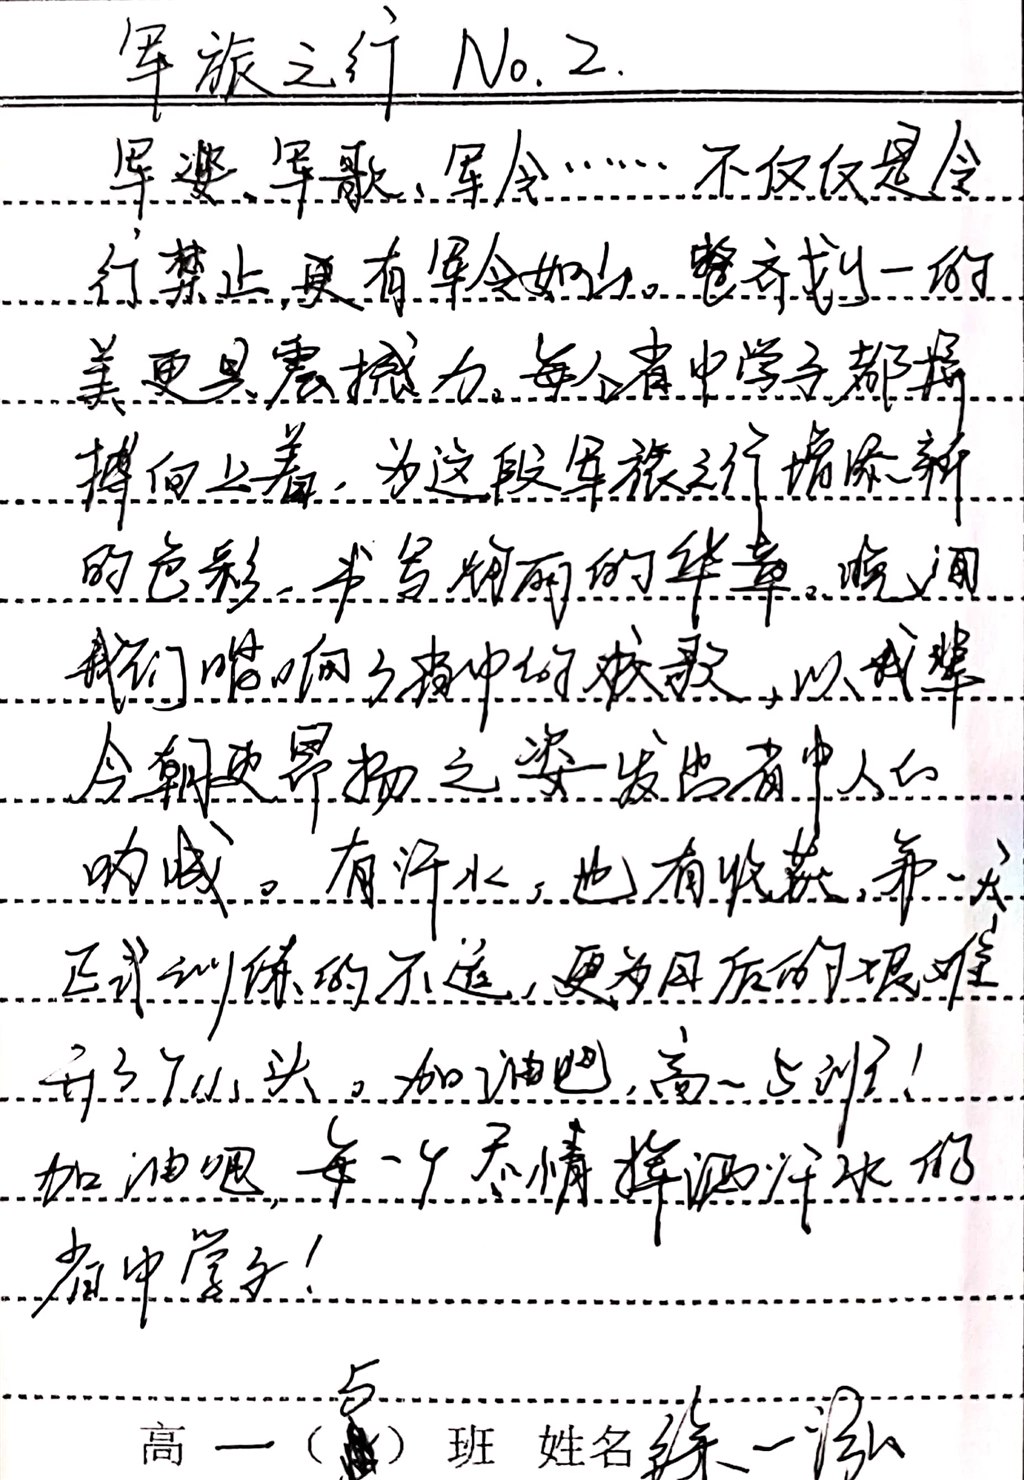 军旅之行 No.2.
军姿、军歌、军令……不仅仅是令
行禁止,更有军令如山。整齐划一的
美更具震撼力。每个省中学子都拼
搏向上着,为这段军旅之行增添新
的色彩,书写绚丽的华章。晚间
我们唱响了省中的校歌,以我辈
今朝更昂扬之姿发出省中人的
呐喊。有汗水,也有收获,第一次
正式训练的不适,更为日后的艰难
开了个小头。加油吧,高一5班!
加油吧,每一个尽情挥洒汗水的
省中学子!
高一(5)班 姓名 徐一泓